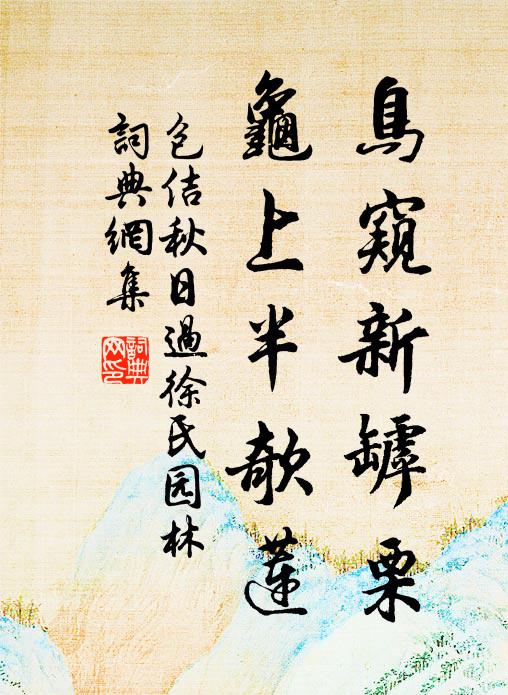 鳥窺新罅栗
龜上半欹蓮
包佶秋日過徐氏园林
詞典網集
詞典網印